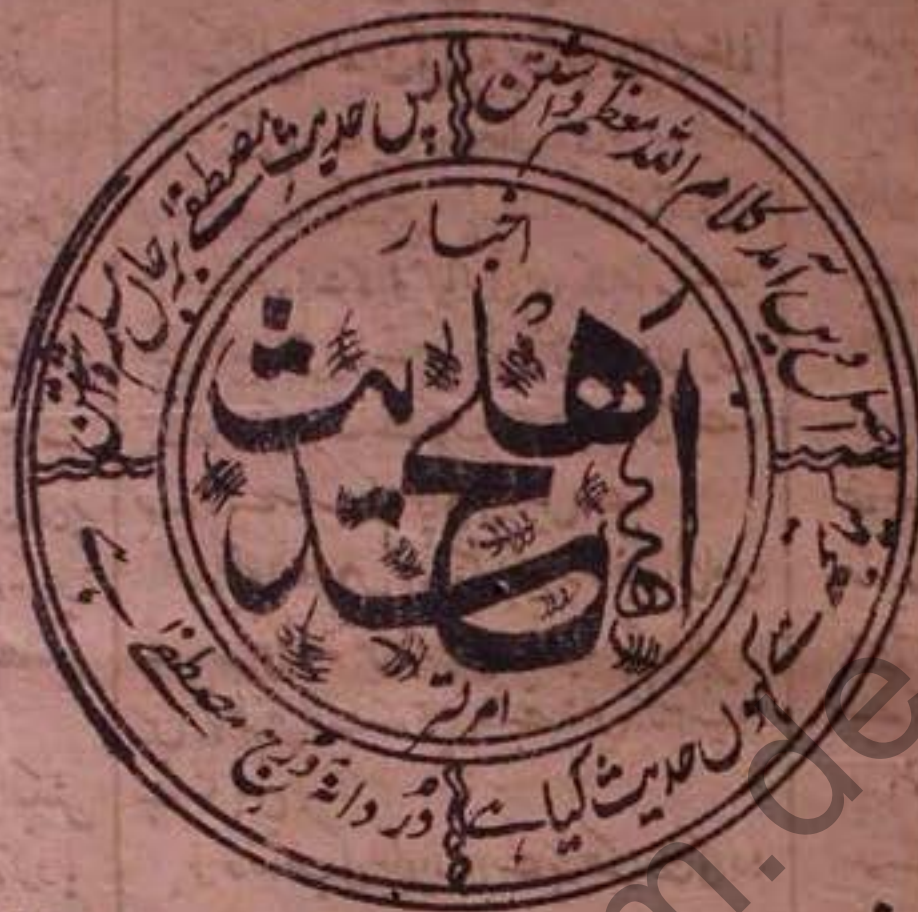 اصل دیں آمد کلام اللہ معظم داشتن
پس حدیث مصطفےٰ بر جاں مسلم داشتن
اخبار
اهلحدیث
امرتسر
کہوں حدیث کیا ہے
دُر دانۂ دُرج مصطفےٰ ہے